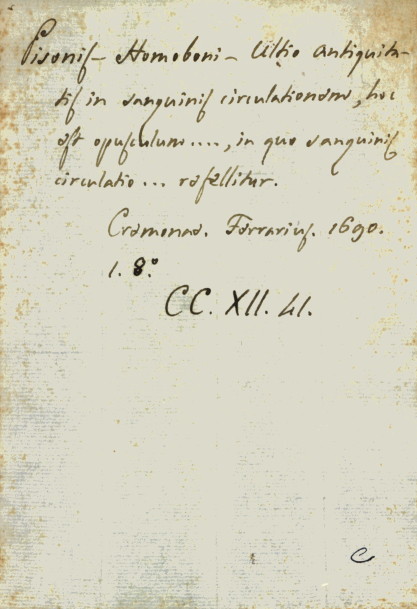 Pisonis - Homoboni - Ultio antiquita-
tis in sanguinis circulationem, hoc
est opusculum...., in quo sanguinis
circulatio... refellitur.
Cremonae. Ferrarius. 1690.
1. 8.°
CC. XII. 41.
C